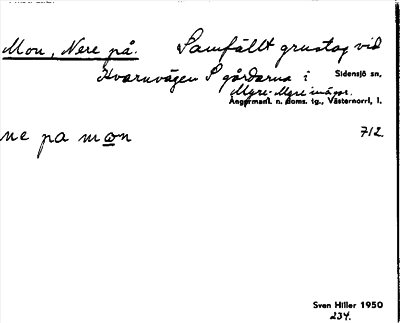 Mon, Nere på. Samfällt grustag vid
Kvarnvägen S gårdarna i Sidensjö sn,
Myre-Myre
Ångermanl. n. doms. tg., Västernorrl. l.
ne pa mon 712.
Sven Hiller 1950
234.